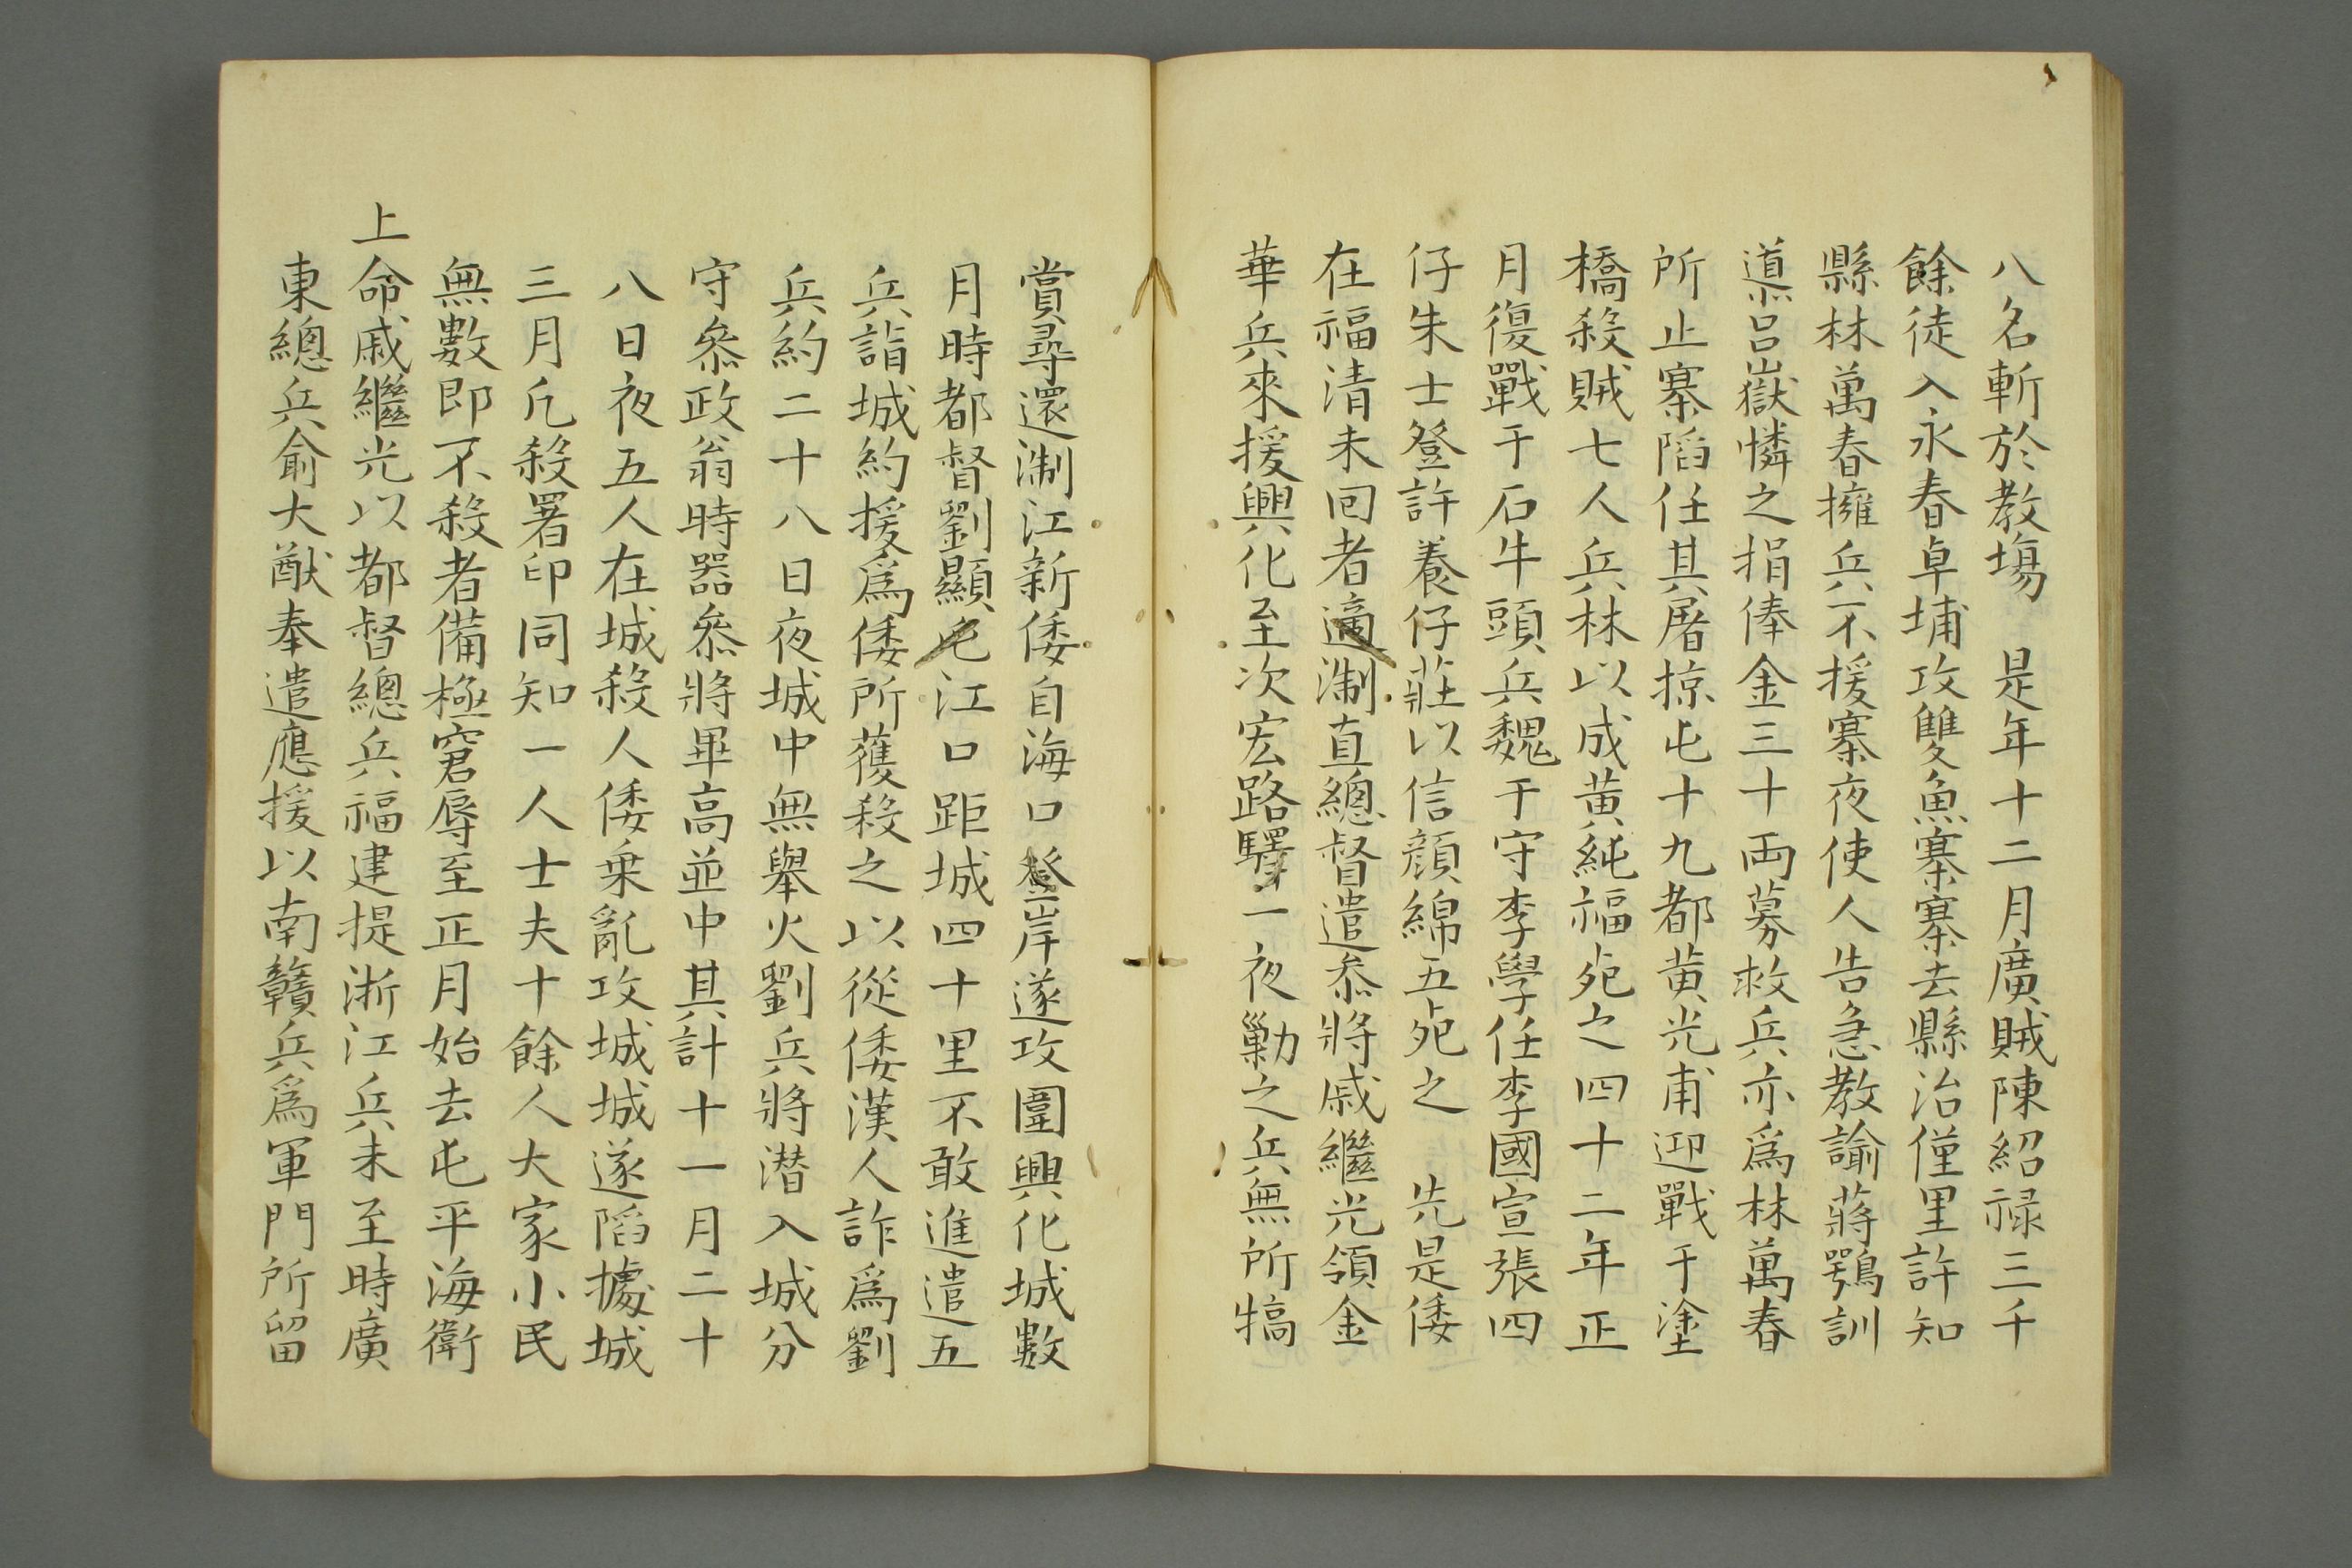 八名斬於教塲　是年十二月廣賊陳紹禄三千
餘徒入永春卓埔攻雙魚寨寨去縣治僅里許知
縣林萬春擁兵不援寨夜使人告急教諭蔣鶚訓
導呂嶽憐之捐俸金三十両募救兵亦爲林萬春
所止寨䧟任其屠掠屯十九都黄光甫迎戰于塗
橋殺賊七人兵林以成黄純福死之四十二年正
月復戰于石牛頭兵魏于守李學任李國宣張四
仔朱士登許養仔莊以信顔綿五死之　先是倭
在福清未回者適淛直總督遣叅將戚繼光領金
華兵來援興化至次宏路驛一夜勦之兵無所犒
賞尋還淛江新倭自海口登岸遂攻圍興化城數
月時都督劉顯屯江口距城四十里不敢進遣五
兵詣城約援爲倭所獲殺之以從倭漢人詐爲劉
兵約二十八日夜城中無舉火劉兵將潜入城分
守叅政翁時器叅將畢高並中其計十一月二十
八日夜五人在城殺人倭乗亂攻城城遂䧟據城
三月凢殺署印同知一人士夫十餘人大家小民
無數即不殺者備極窘辱至正月始去屯平海衛
上命戚繼光以都督總兵福建提浙江兵未至時廣
東總兵俞大猷奉遣應援以南贛兵爲軍門所留